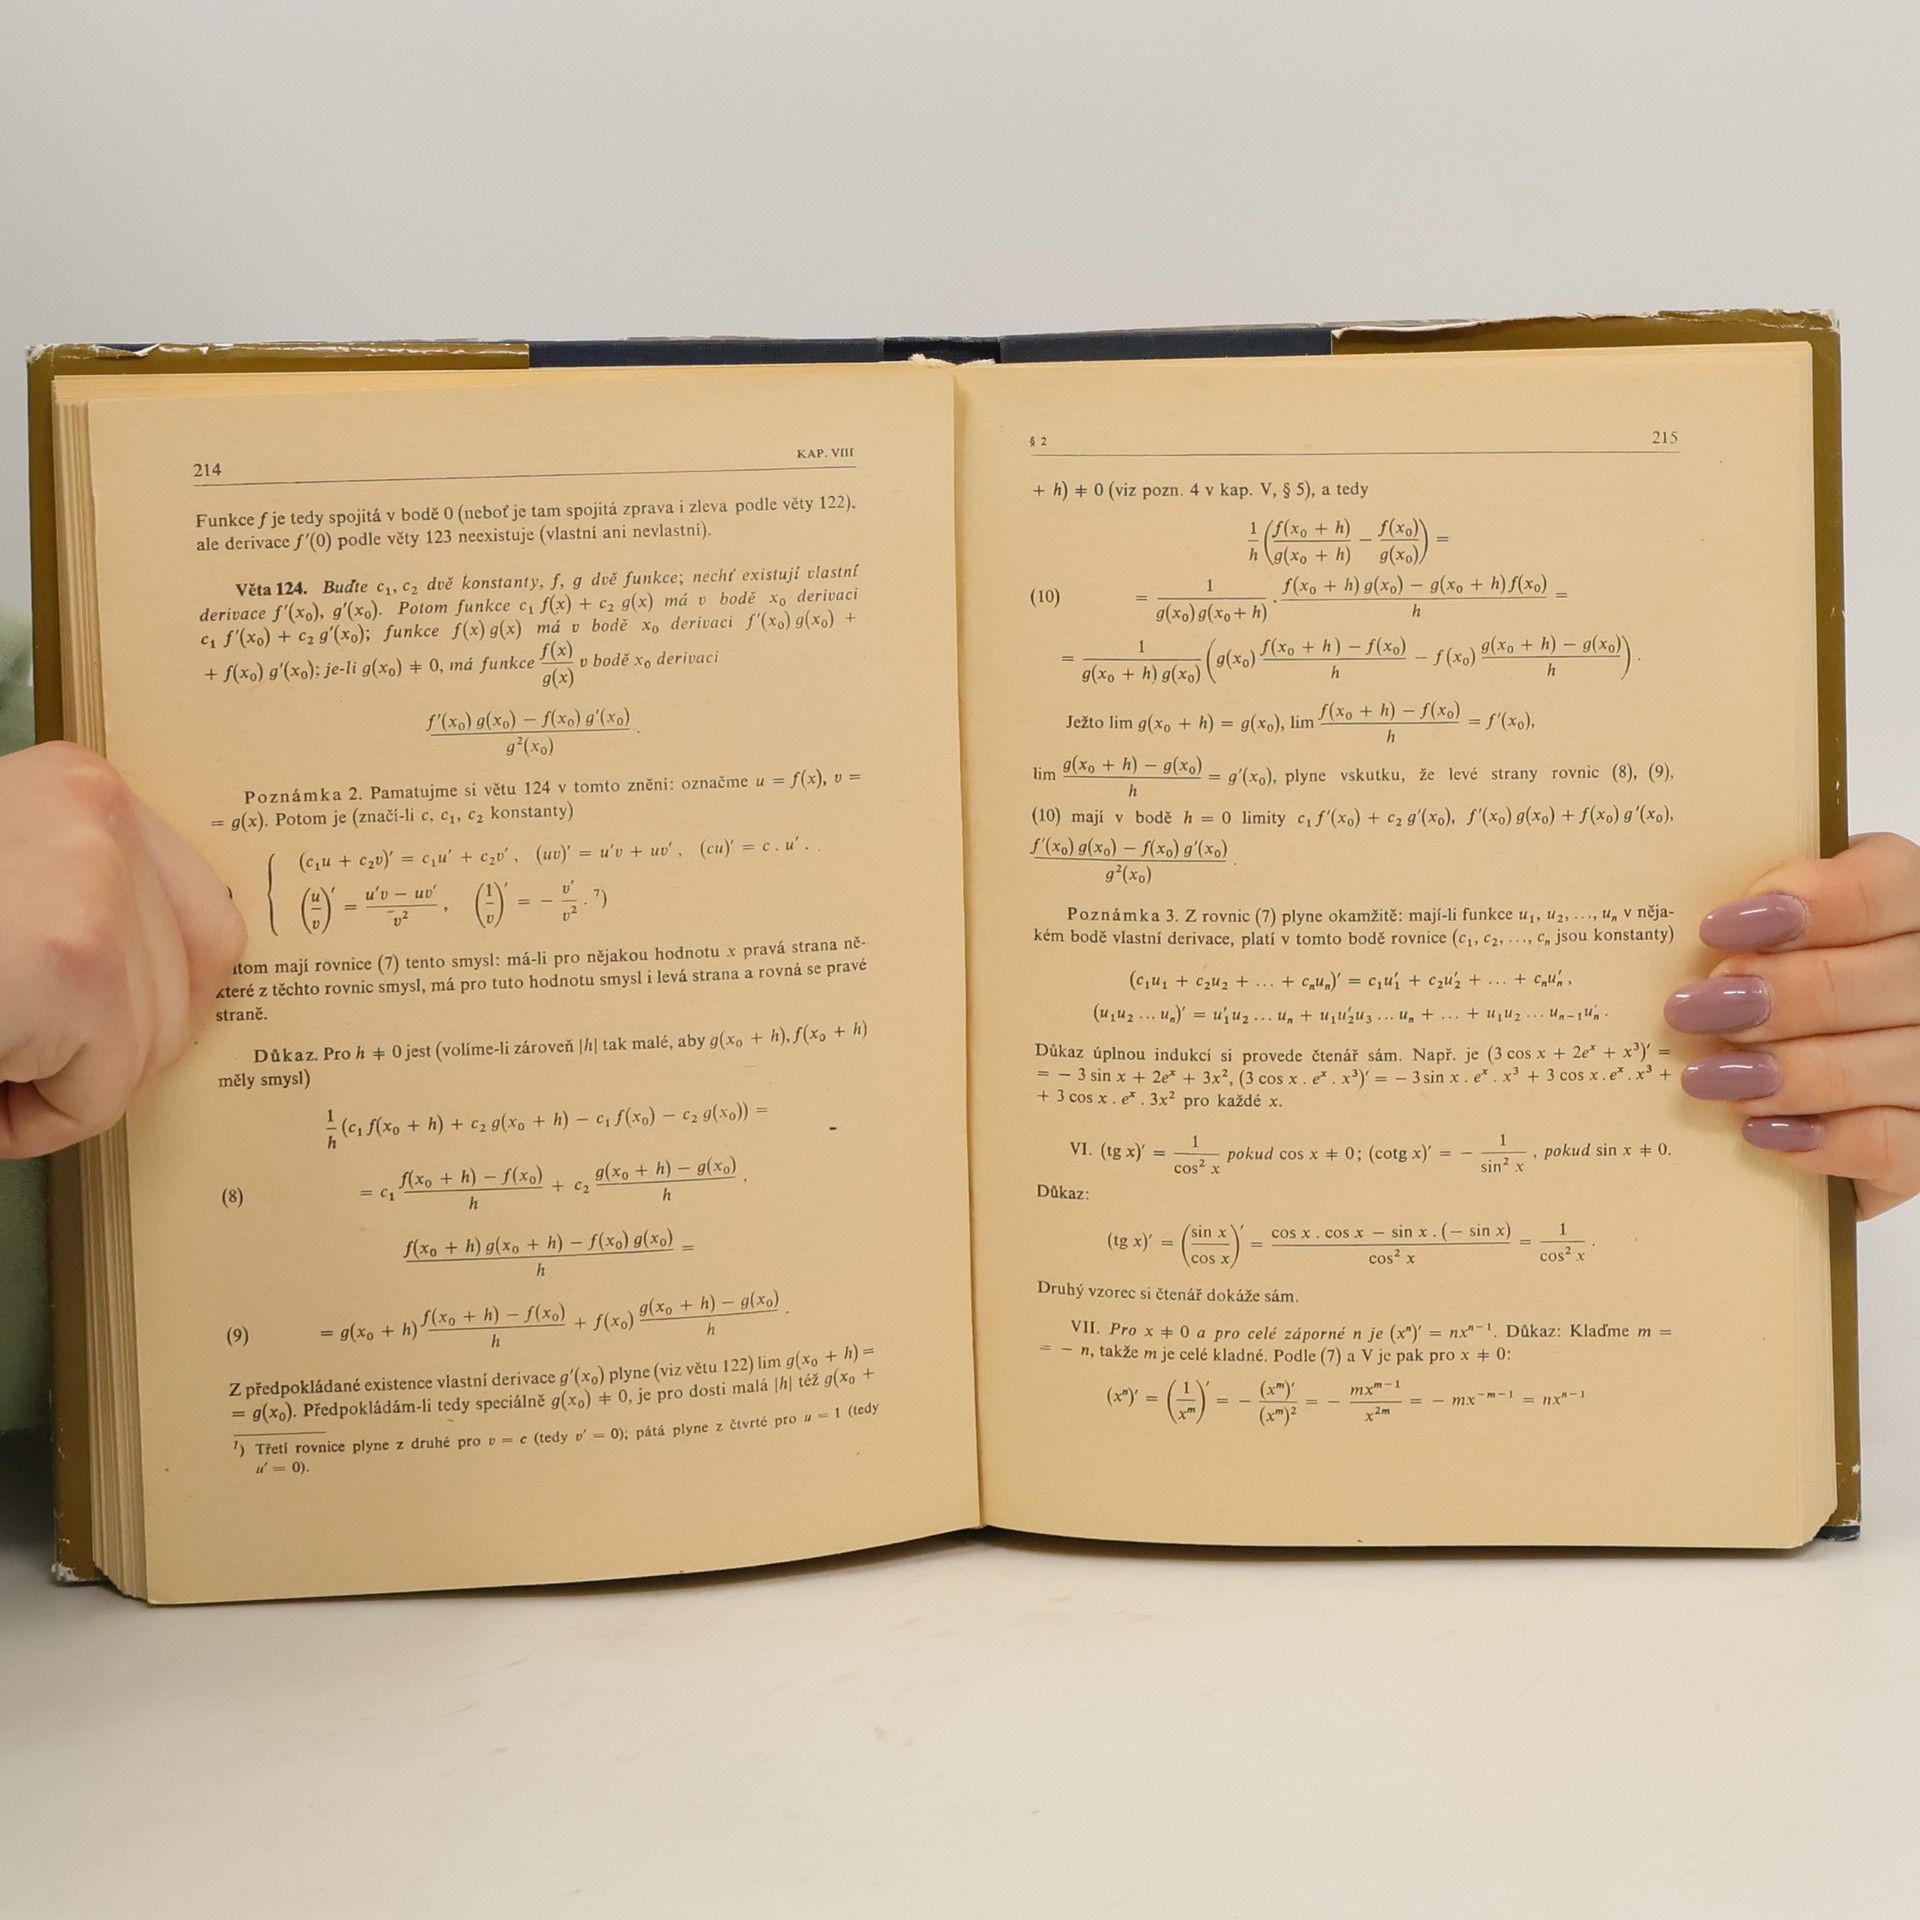 214 KAP. VIII
Funkce f je tedy spojitá v bodě 0 (neboť je tam spojitá zprava i zleva podle věty 122),
ale derivace f′(0) podle věty 123 neexistuje (vlastní ani nevlastní).
Věta 124. Buďte c₁, c₂ dvě konstanty, f, g dvě funkce; nechť existují vlastní
derivace f′(x₀), g′(x₀). Potom funkce c₁ f(x) + c₂ g(x) má v bodě x₀ derivaci
c₁ f′(x₀) + c₂ g′(x₀); funkce f(x) g(x) má v bodě x₀ derivaci f′(x₀) g(x₀) +
+ f(x₀) g′(x₀); je-li g(x₀) ≠ 0, má funkce f(x)/g(x) v bodě x₀ derivaci
(f′(x₀) g(x₀) − f(x₀) g′(x₀))/g²(x₀) .
Poznámka 2. Pamatujme si větu 124 v tomto znění: označme u = f(x), v =
= g(x). Potom je (značí-li c, c₁, c₂ konstanty)
(c₁u + c₂v)′ = c₁u′ + c₂v′ , (uv)′ = u′v + uv′ , (cu)′ = c . u′ .
(u/v)′ = (u′v − uv′)/v² , (1/v)′ = − v′/v² . ⁷)
mají rovnice (7) tento smysl: má-li pro nějakou hodnotu x pravá strana ně-
které z těchto rovnic smysl, má pro tuto hodnotu smysl i levá strana a rovná se pravé
straně.
Důkaz. Pro h ≠ 0 jest (volíme-li zároveň |h| tak malé, aby g(x₀ + h), f(x₀ + h)
měly smysl)
1/h (c₁ f(x₀ + h) + c₂ g(x₀ + h) − c₁ f(x₀) − c₂ g(x₀)) =
(8) = c₁ (f(x₀ + h) − f(x₀))/h + c₂ (g(x₀ + h) − g(x₀))/h ,
(f(x₀ + h) g(x₀ + h) − f(x₀) g(x₀))/h =
(9) = g(x₀ + h) (f(x₀ + h) − f(x₀))/h + f(x₀) (g(x₀ + h) − g(x₀))/h .
Z předpokládané existence vlastní derivace g′(x₀) plyne (viz větu 122) lim g(x₀ + h) =
= g(x₀). Předpokládám-li tedy speciálně g(x₀) ≠ 0, je pro dosti malá |h| též g(x₀ +
⁷) Třetí rovnice plyne z druhé pro v = c (tedy v′ = 0); pátá plyne z čtvrté pro u = 1 (tedy
u′ = 0).
§ 2 215
+ h) ≠ 0 (viz pozn. 4 v kap. V, § 5), a tedy
1/h (f(x₀ + h)/g(x₀ + h) − f(x₀)/g(x₀)) =
(10) = 1/(g(x₀) g(x₀ + h)) . (f(x₀ + h) g(x₀) − g(x₀ + h) f(x₀))/h =
= 1/(g(x₀ + h) g(x₀)) (g(x₀) (f(x₀ + h) − f(x₀))/h − f(x₀) (g(x₀ + h) − g(x₀))/h) .
Ježto lim g(x₀ + h) = g(x₀), lim (f(x₀ + h) − f(x₀))/h = f′(x₀),
lim (g(x₀ + h) − g(x₀))/h = g′(x₀), plyne vskutku, že levé strany rovnic (8), (9),
(10) mají v bodě h = 0 limity c₁ f′(x₀) + c₂ g′(x₀), f′(x₀) g(x₀) + f(x₀) g′(x₀),
(f′(x₀) g(x₀) − f(x₀) g′(x₀))/g²(x₀) .
Poznámka 3. Z rovnic (7) plyne okamžitě: mají-li funkce u₁, u₂, ..., uₙ v něja-
kém bodě vlastní derivace, platí v tomto bodě rovnice (c₁, c₂, ..., cₙ jsou konstanty)
(c₁u₁ + c₂u₂ + ... + cₙuₙ)′ = c₁u₁′ + c₂u₂′ + ... + cₙuₙ′ ,
(u₁u₂ ... uₙ)′ = u₁′u₂ ... uₙ + u₁u₂′u₃ ... uₙ + ... + u₁u₂ ... uₙ₋₁uₙ′ .
Důkaz úplnou indukcí si provede čtenář sám. Např. je (3 cos x + 2eˣ + x³)′ =
= − 3 sin x + 2eˣ + 3x², (3 cos x . eˣ . x³)′ = − 3 sin x . eˣ . x³ + 3 cos x . eˣ . x³ +
+ 3 cos x . eˣ . 3x² pro každé x.
VI. (tg x)′ = 1/cos² x pokud cos x ≠ 0; (cotg x)′ = − 1/sin² x , pokud sin x ≠ 0.
Důkaz:
(tg x)′ = (sin x/cos x)′ = (cos x . cos x − sin x . (− sin x))/cos² x = 1/cos² x .
Druhý vzorec si čtenář dokáže sám.
VII. Pro x ≠ 0 a pro celé záporné n je (xⁿ)′ = nxⁿ⁻¹. Důkaz: Klaďme m =
= − n, takže m je celé kladné. Podle (7) a V je pak pro x ≠ 0:
(xⁿ)′ = (1/xᵐ)′ = − (xᵐ)′/(xᵐ)² = − mxᵐ⁻¹/x²ᵐ = − mx⁻ᵐ⁻¹ = nxⁿ⁻¹